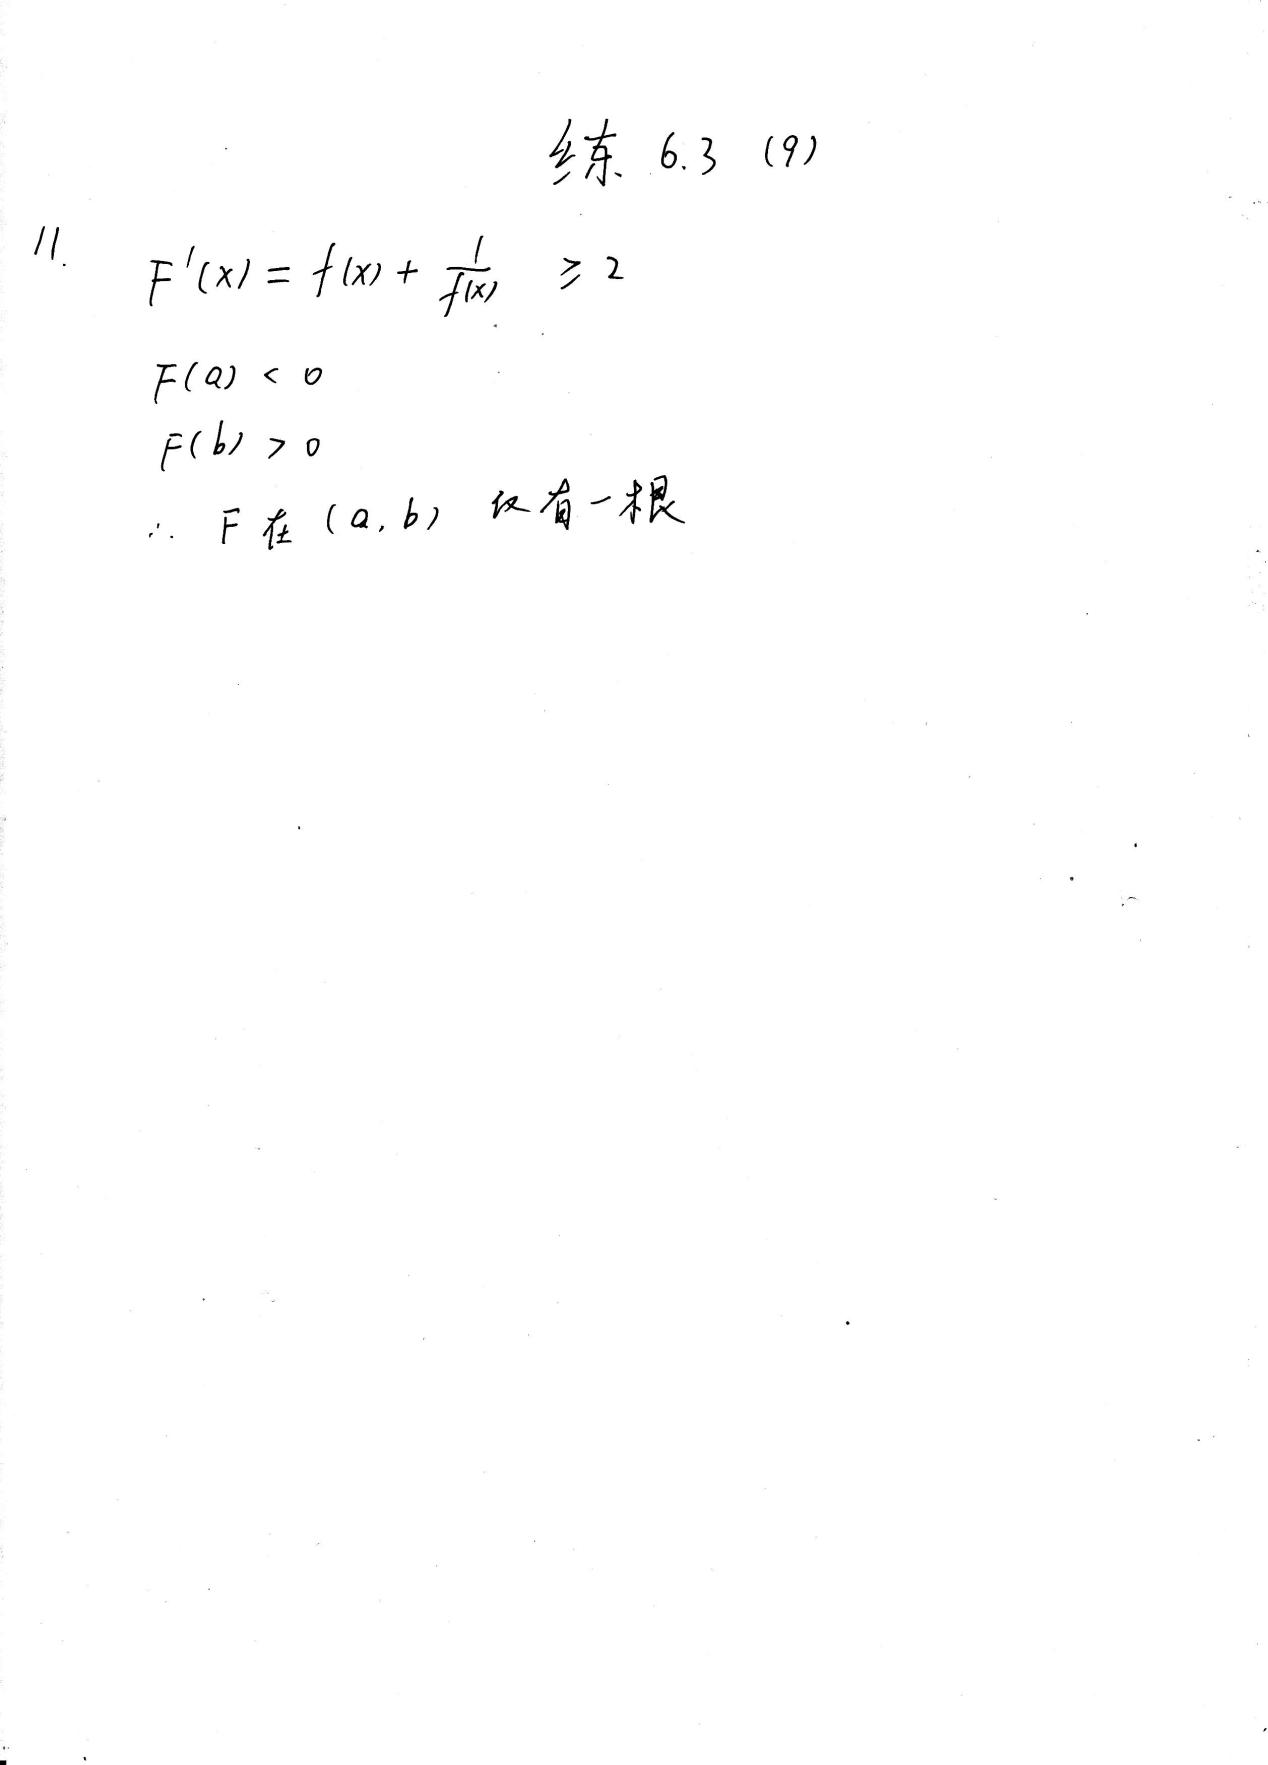 练 6.3 (9)
11.
F'(x) = f(x) + 1/f(x) ≥ 2
F(a) < 0
F(b) > 0
∴ F 在 (a, b) 仅有一根